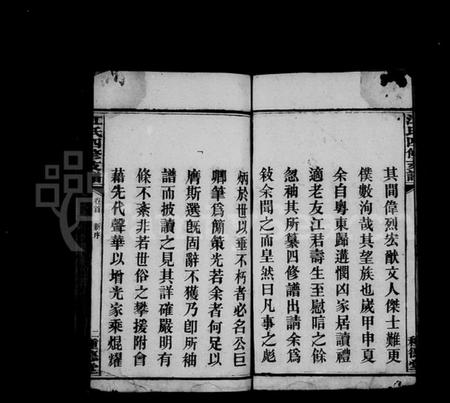 江氏四修支譜
其間偉烈宏猷文人傑士難更
僕數洵哉其望族也歲甲申夏
余自粵東歸遘憫凶家居讀禮
適老友江君壽生至慰唁之餘
忽袖其所纂四修譜出請余為
敍余聞之而皇然曰凡事之彪
炳於世以垂不朽者必名公巨
卿筆為簡策光若余者何足以
膺斯選旣固辭不獲乃卽所袖
譜而披讀之見其詳確嚴明有
條不紊非若世俗之攀援附會
藉先代聲華以增光家乘焜耀
江氏四修支譜
卷首
新序
二
種德堂